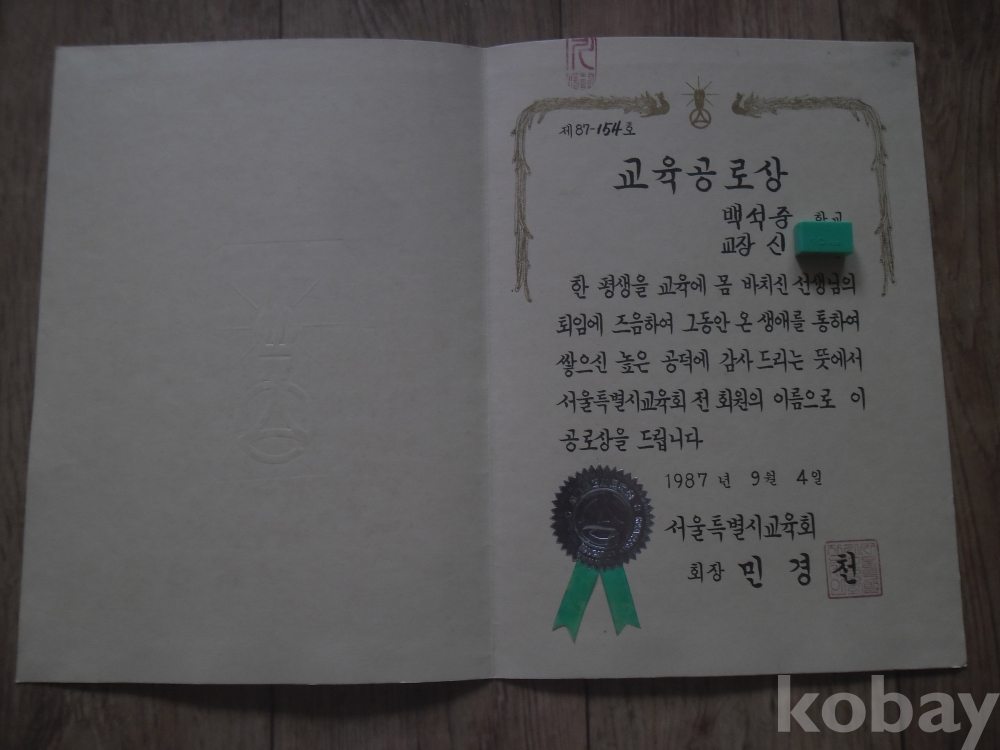 제87-154호
교육공로상
백석중 학교
교장 신
한 평생을 교육에 몸 바치신 선생님의
퇴임에 즈음하여 그동안 온 생애를 통하여
쌓으신 높은 공덕에 감사 드리는 뜻에서
서울특별시교육회 전 회원의 이름으로 이
공로상을 드립니다
1987년 9월 4일
서울특별시교육회
회장 민경천
kobay